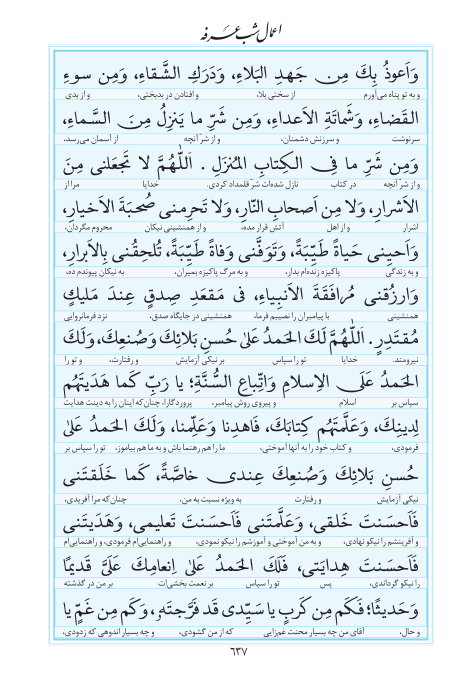 اعمال شب عرفه
وَاَعوذُ بِكَ مِن جَهدِ البَلاءِ، وَدَرَكِ الشَّقاءِ، وَمِن سوءِ
و به تو پناه می‌آورم از سختی بلا، و افتادن در بدبختی، و از بدی
القَضاءِ، وَشَماتَةِ الاَعداءِ، وَمِن شَرِّ ما يَنزِلُ مِنَ السَّماءِ،
سرنوشت و سرزنش دشمنان، و از شر آنچه از آسمان می‌رسد،
وَمِن شَرِّ ما فِی الكِتابِ المُنزَلِ . اَللّٰهُمَّ لا تَجعَلنی مِنَ
و از شر آنچه در کتاب نازل شده‌ات شر قلمداد کردی. خدایا مرا از
الاَشرارِ، وَلا مِن اَصحابِ النّارِ، وَلا تَحرِمنی صُحبَةَ الاَخيارِ،
اشرار و از اهل آتش قرار مده، و از همنشینی نیکان محروم مگردان،
وَاَحيِنی حَياةً طَيِّبَةً، وَتَوَفَّنی وَفاةً طَيِّبَةً، تُلحِقُنی بِالاَبرارِ،
و به زندگی پاکیزه زنده‌ام بدار، و به مرگ پاکیزه بمیران، به نیکان پیوندم ده،
وَارزُقنی مُرافَقَةَ الاَنبياءِ، فی مَقعَدِ صِدقٍ عِندَ مَليكٍ
همنشینی با پیامبران را نصیبم فرما، همنشینی در جایگاه صدق، نزد فرمانروایی
مُقتَدِرٍ. اَللّٰهُمَّ لَكَ الحَمدُ عَلیٰ حُسنِ بَلائِكَ وَصُنعِكَ، وَلَكَ
نیرومند. خدایا تو را سپاس بر نیکی آزمایش و رفتارت، و تو را
الحَمدُ عَلَی الاِسلامِ وَاتِّباعِ السُّنَّةِ؛ يا رَبِّ كَما هَدَيتَهُم
سپاس بر اسلام و پیروی روش پیامبر، پروردگارا، چنان‌که اینان را به دینت هدایت
لِدينِكَ، وَعَلَّمتَهُم كِتابَكَ، فَاهدِنا وَعَلِّمنا، وَلَكَ الحَمدُ عَلیٰ
فرمودی، و کتاب خود را به آنها آموختی، ما را هم رهنما باش و به ما هم بیاموز، تو را سپاس بر
حُسنِ بَلائِكَ وَصُنعِكَ عِندی خاصَّةً، كَما خَلَقتَنی
نیکی آزمایش و رفتارت به ویژه نسبت به من، چنان‌که مرا آفریدی،
فَاَحسَنتَ خَلقی، وَعَلَّمتَنی فَاَحسَنتَ تَعليمی، وَهَدَيتَنی
و آفرینشم را نیکو نهادی، و به من آموختی و آموزشم را نیکو نمودی، و راهنمایی‌ام فرمودی، و راهنمایی‌ام
فَاَحسَنتَ هِدايَتی، فَلَكَ الحَمدُ عَلیٰ اِنعامِكَ عَلَیَّ قَديمًا
را نیکو گرداندی، پس تو را سپاس بر نعمت بخشی‌ات بر من در گذشته
وَحَديثًا؛ فَكَم مِن كَربٍ يا سَيِّدی قَد فَرَّجتَهُ، وَكَم مِن غَمٍّ يا
و حال، آقای من چه بسیار محنت غم‌زایی که از من گشودی، و چه بسیار اندوهی که زدودی،
٦٣٧